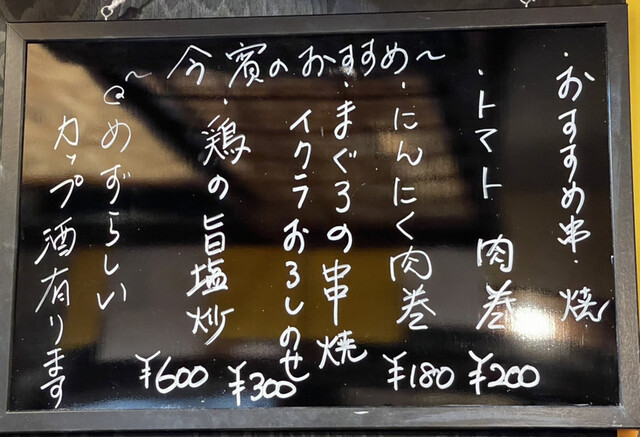 〜今賓のおすすめ〜
・おすすめ串・焼
・トマト肉巻 ¥200
・にんにく肉巻 ¥180
・まぐろの串焼
イクラおろしのせ ¥300
・鶏の旨塩炒 ¥600
めずらしい
カップ酒有ります